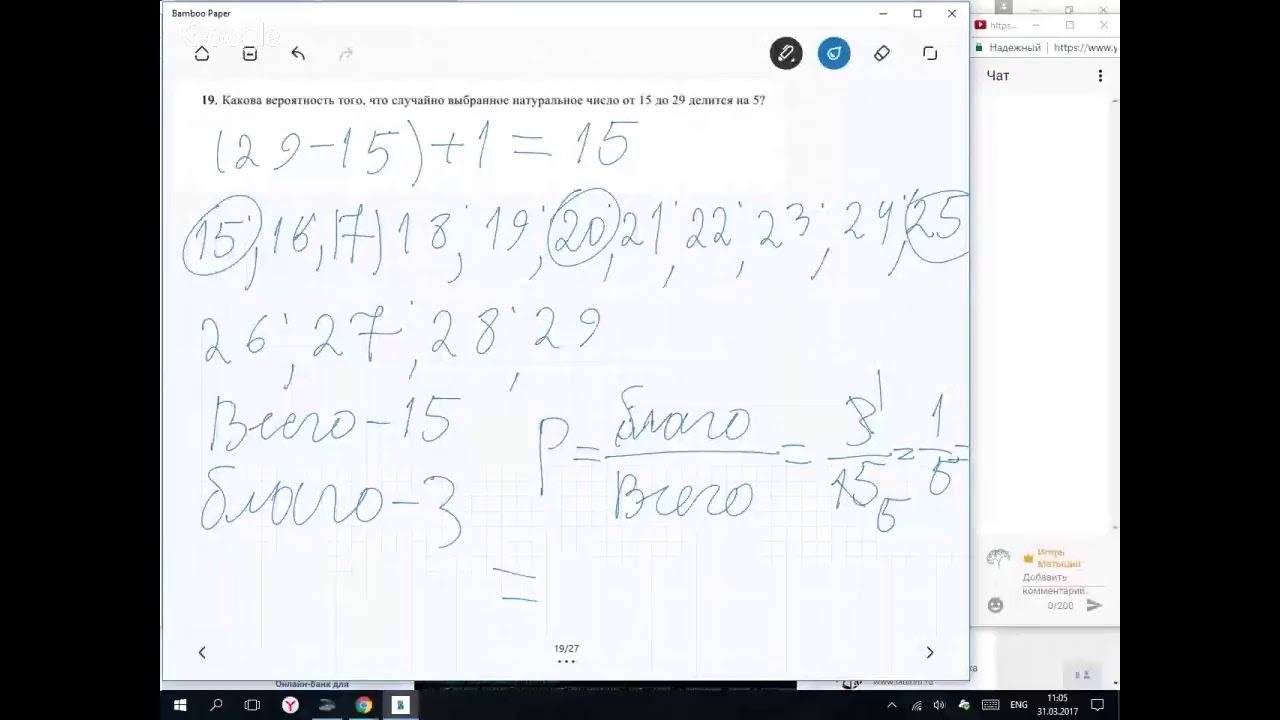 Bamboo Paper
Google
https:...
Надежный | https://www.y
Чат
19. Какова вероятность того, что случайно выбранное натуральное число от 15 до 29 делится на 5?
(29-15)+1=15
15, 16, 17, 18, 19, 20, 21, 22, 23, 24, 25
26, 27, 28, 29
Всего-15
благо-3
P = благо/Всего = 3/15 = 1/5 =
1
5
=
Игорь
Матыцин
Добавить
комментарий.
0/200
19/27
Онлайн-Банк для
ENG
11:05
31.03.2017